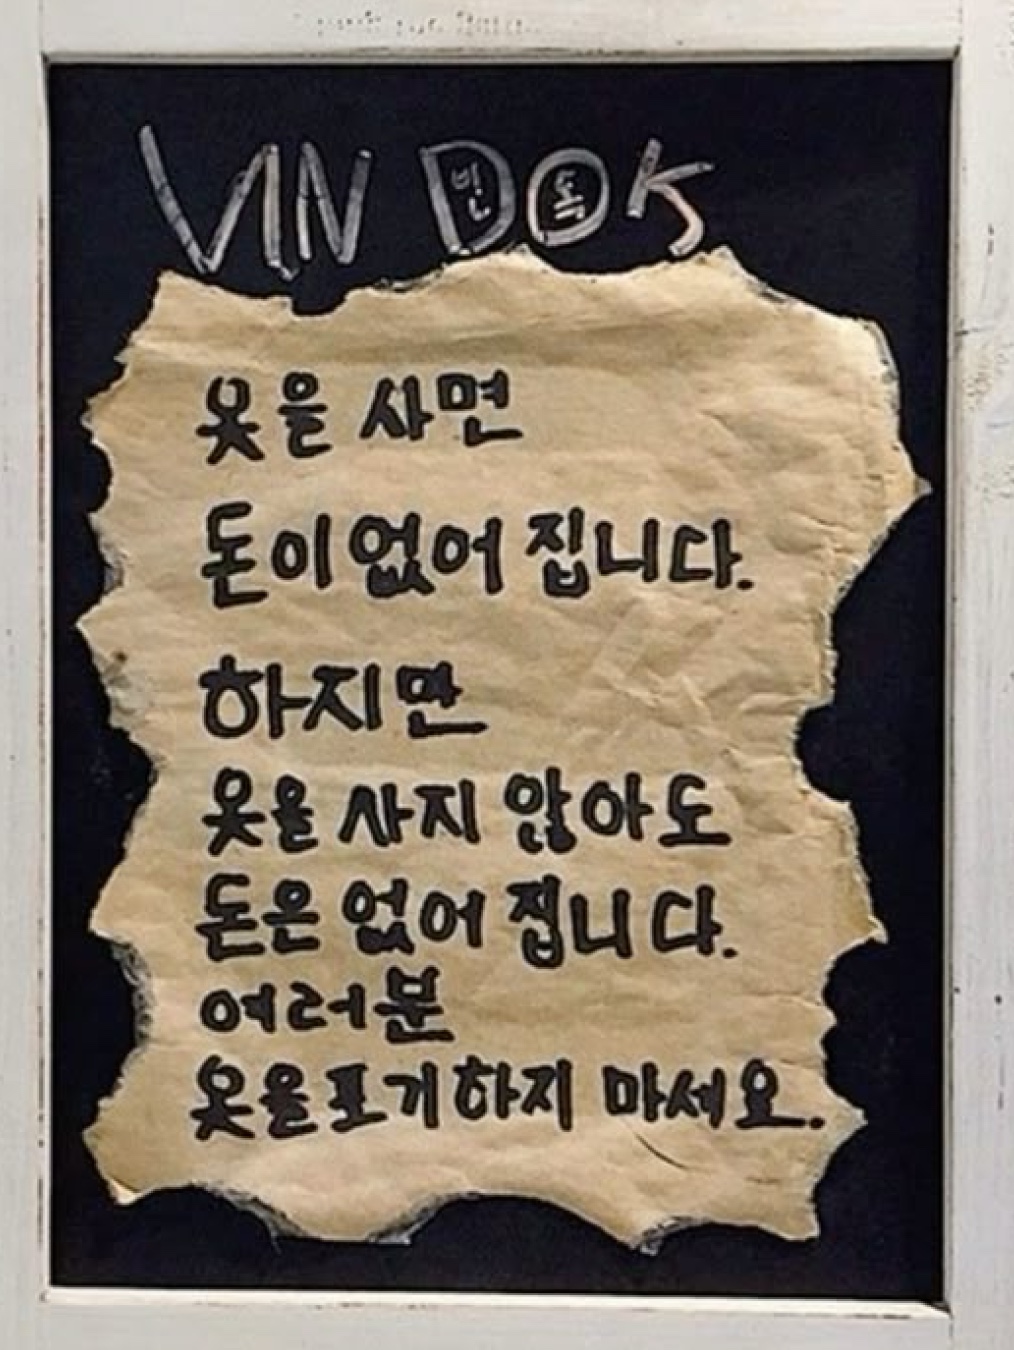 VIN DOK
빈 톡
옷을 사면
돈이 없어 집니다.
하지만
옷을 사지 않아도
돈은 없어 집니다.
여러분
옷을 포기하지 마세요.